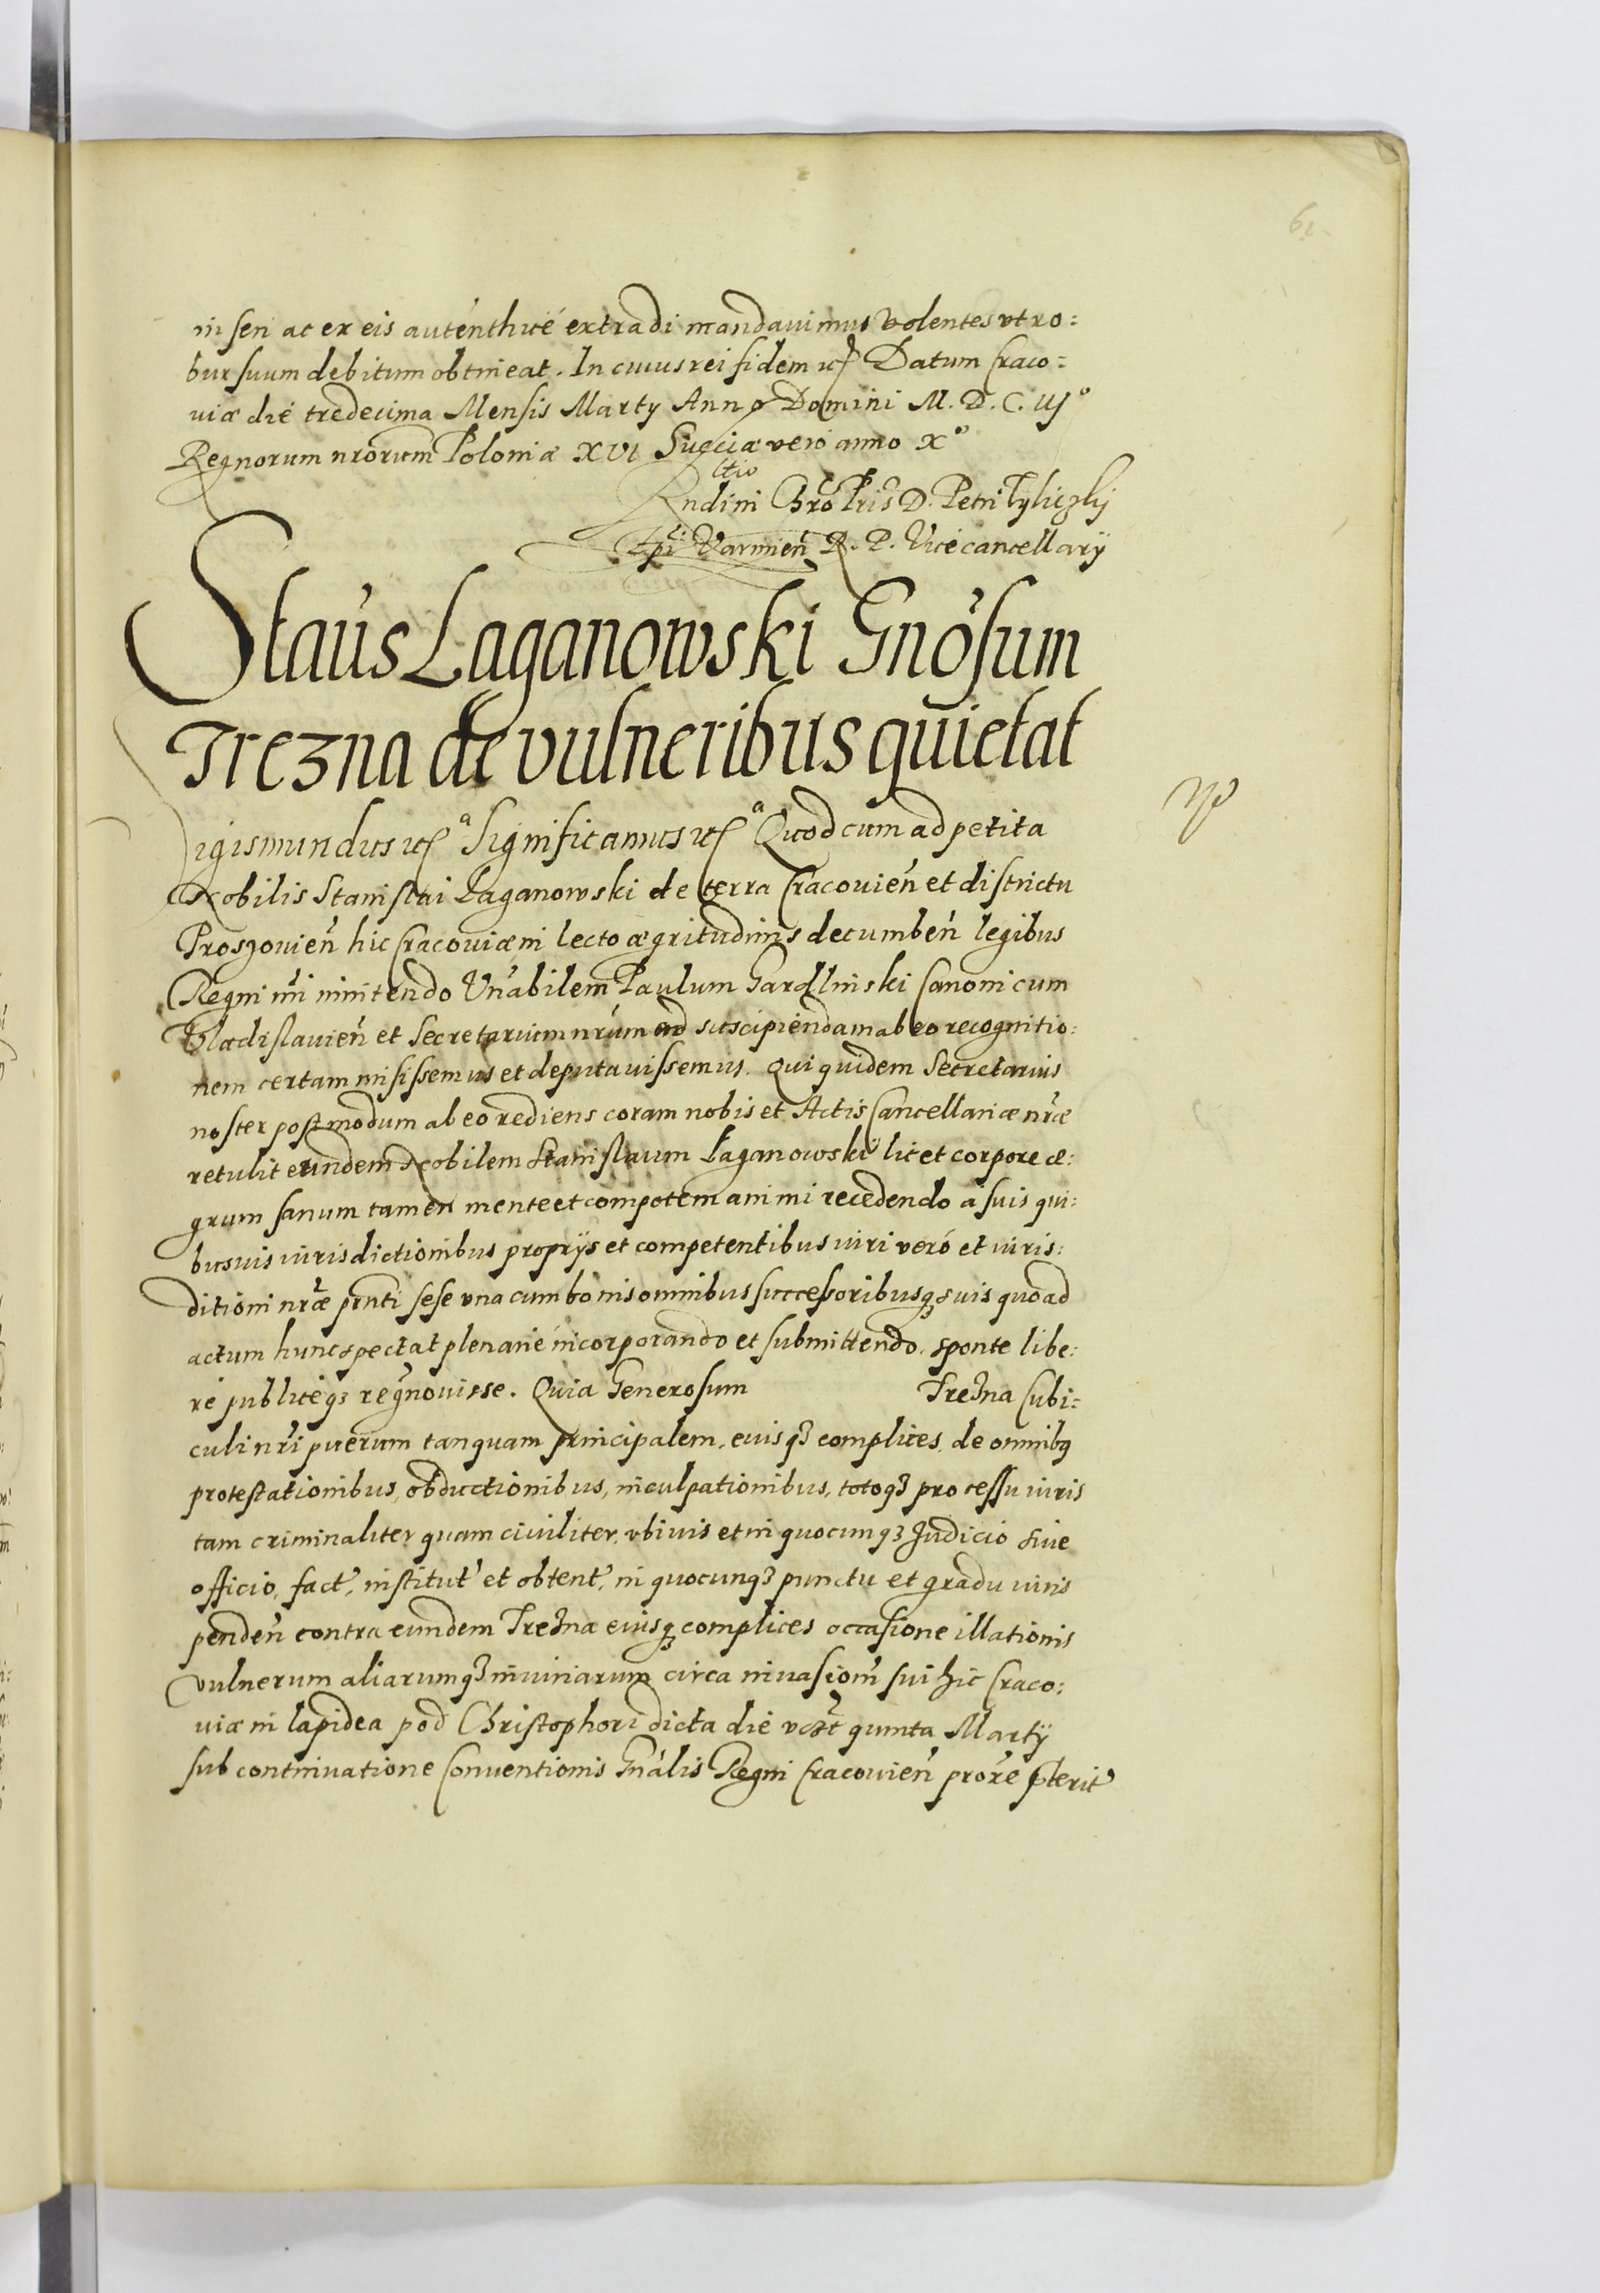 61
inseri ac ex eis autenthicè extradi mandavimus volentes vt ro:
bur suum debitum obtineat. In cuius rei fidem etc Datum Craco:
viæ die tredecima Mensis Martÿ Anno Domini M. D. C. iijº
Regnorum nrorum Poloniæ XVI Sueciæ vero anno Xº
Rndini Chro Pris D. Petri Tÿliczkÿ
Epi Varmien R. P. Vicecancellarÿ
Staus Laganowski Gnosum
Trezna de vulneribus quietat
Sigismundus etc.ª Significamus etc.ª Quod cum ad petita
Nobilis Stanislai Łaganowski de terra Cracovien et districtu
Proszovien hic Cracoviæ in lecto ægritudinis decumben legibus
Regni nri innitendo Vnabilem Paulum Gardlinski Canonicum
Vladislavien et Secretarium nrum ad suscipiendam ab eo recognitio:
nem certam misissemus et deputavissemus. Qui quidem Secretarius
noster postmodum ab eo rediens coram nobis et Actis Cancellariæ nræ
retulit eundem Nobilem Stanislaum Łaganowskÿ licet corpore æ:
grum sanum tamen mente et compotem animi recedendo à suis qui:
busvis iurisdictionibus proprÿs et competentibus iuri verò et iuris:
ditioni nræ pnti sese vna cum bonis omnibus successoribusq suis quoad
actum hunc spectat plenariè incorporando et submittendo. sponte libe:
rè publiceq recgnovisse. Quia Generosum Trezna Cubi:
culi nri puerum tanquam principalem, eiusq complices, de omnibq
protestationibus, obductionibus, inculpationibus, totoq processu iuris
tam criminaliter quam civiliter, vbivis et in quocunq Iudicio sive
officio, fact, institut et obtent, in quocunq punctu et gradu iuris
penden contra eundem Trezna eiusq complices occasione illationis
vulnerum aliarumq iniuriarum circa invasiom sui hic Craco:
viæ in lapidea pod Christophori dicta die vigt quinta Martÿ
sub continuatione Conventionis Gnalis Regni Cracovien prore pterit